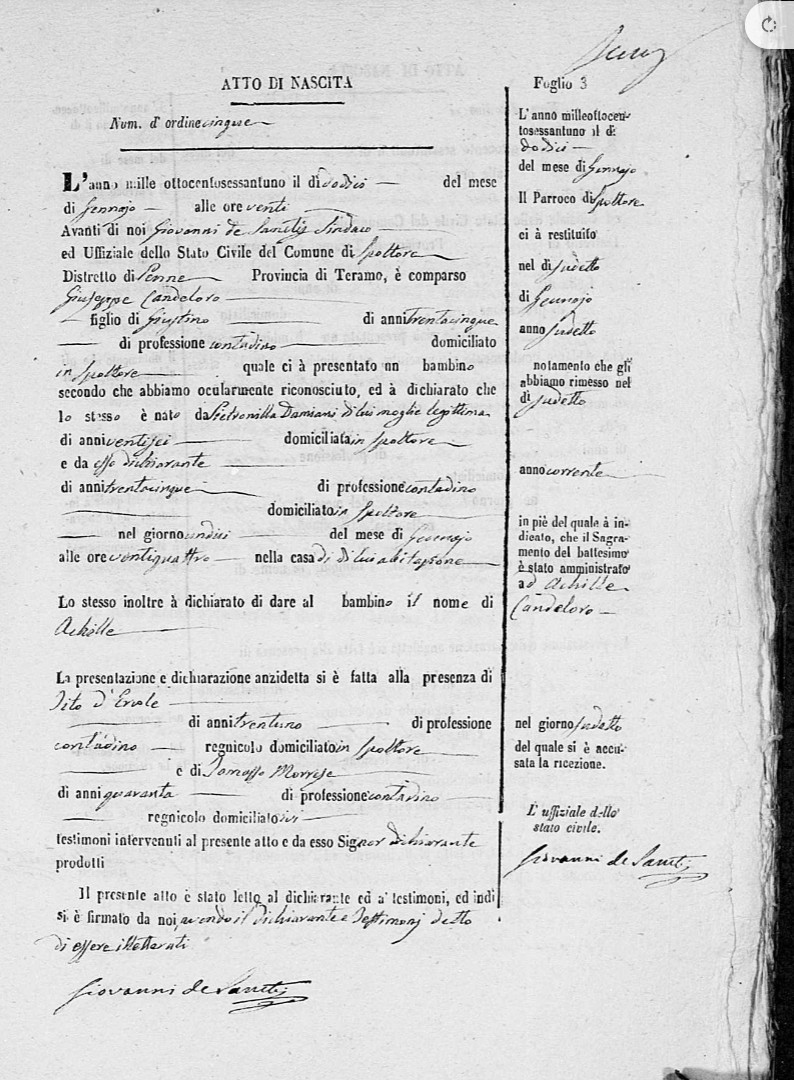 ATTO DI NASCITA
Num. d' ordine cinque
L'anno mille ottocentosessantuno il dì dodici del mese
di Gennajo alle ore venti
Avanti di noi Giovanni de Sanctis Sindaco
ed Uffiziale dello Stato Civile del Comune di Spoltore
Distretto di Penne Provincia di Teramo, è comparso
Giuseppe Candeloro
figlio di Giustino di anni trentacinque
di professione contadino domiciliato
in Spoltore quale ci à presentato un bambino
secondo che abbiamo ocularmente riconosciuto, ed à dichiarato che
lo stesso è nato da Petronilla Damiani di lui moglie legittima
di anni ventisei domiciliata in Spoltore
e da esso dichiarante
di anni trentacinque di professione contadino
domiciliato in Spoltore
nel giorno undici del mese di Gennajo
alle ore ventiquattro nella casa di di lui abitazione
Lo stesso inoltre à dichiarato di dare al bambino il nome di
Achille
La presentazione e dichiarazione anzidetta si è fatta alla presenza di
Tito d'Ercole
di anni trentuno di professione
contadino regnicolo domiciliato in Spoltore
e di Tomasso Morrese
di anni quaranta di professione contadino
regnicolo domiciliato ivi
testimoni intervenuti al presente atto e da esso Signor dichiarante
prodotti
Il presente atto è stato letto al dichiarante ed a' testimoni, ed indi
si è firmato da noi, avendo il dichiarante e Testimonj detto
di essere illetterati
Giovanni de Sanctis
Foglio 3
L'anno milleottocen-
tosessantuno il dì
dodici
del mese di Gennajo
Il Parroco di Spoltore
ci à restituito
nel dì sudetto
di Gennajo
anno sudetto
notamento che gli
abbiamo rimesso nel
dì sudetto
anno corrente
in piè del quale à in-
dicato, che il Sagra-
mento del battesimo
è stato amministrato
ad Achille
Candeloro
nel giorno sudetto
del quale si è accu-
sata la ricezione.
L' uffiziale dello
stato civile.
Giovanni de Sanctis